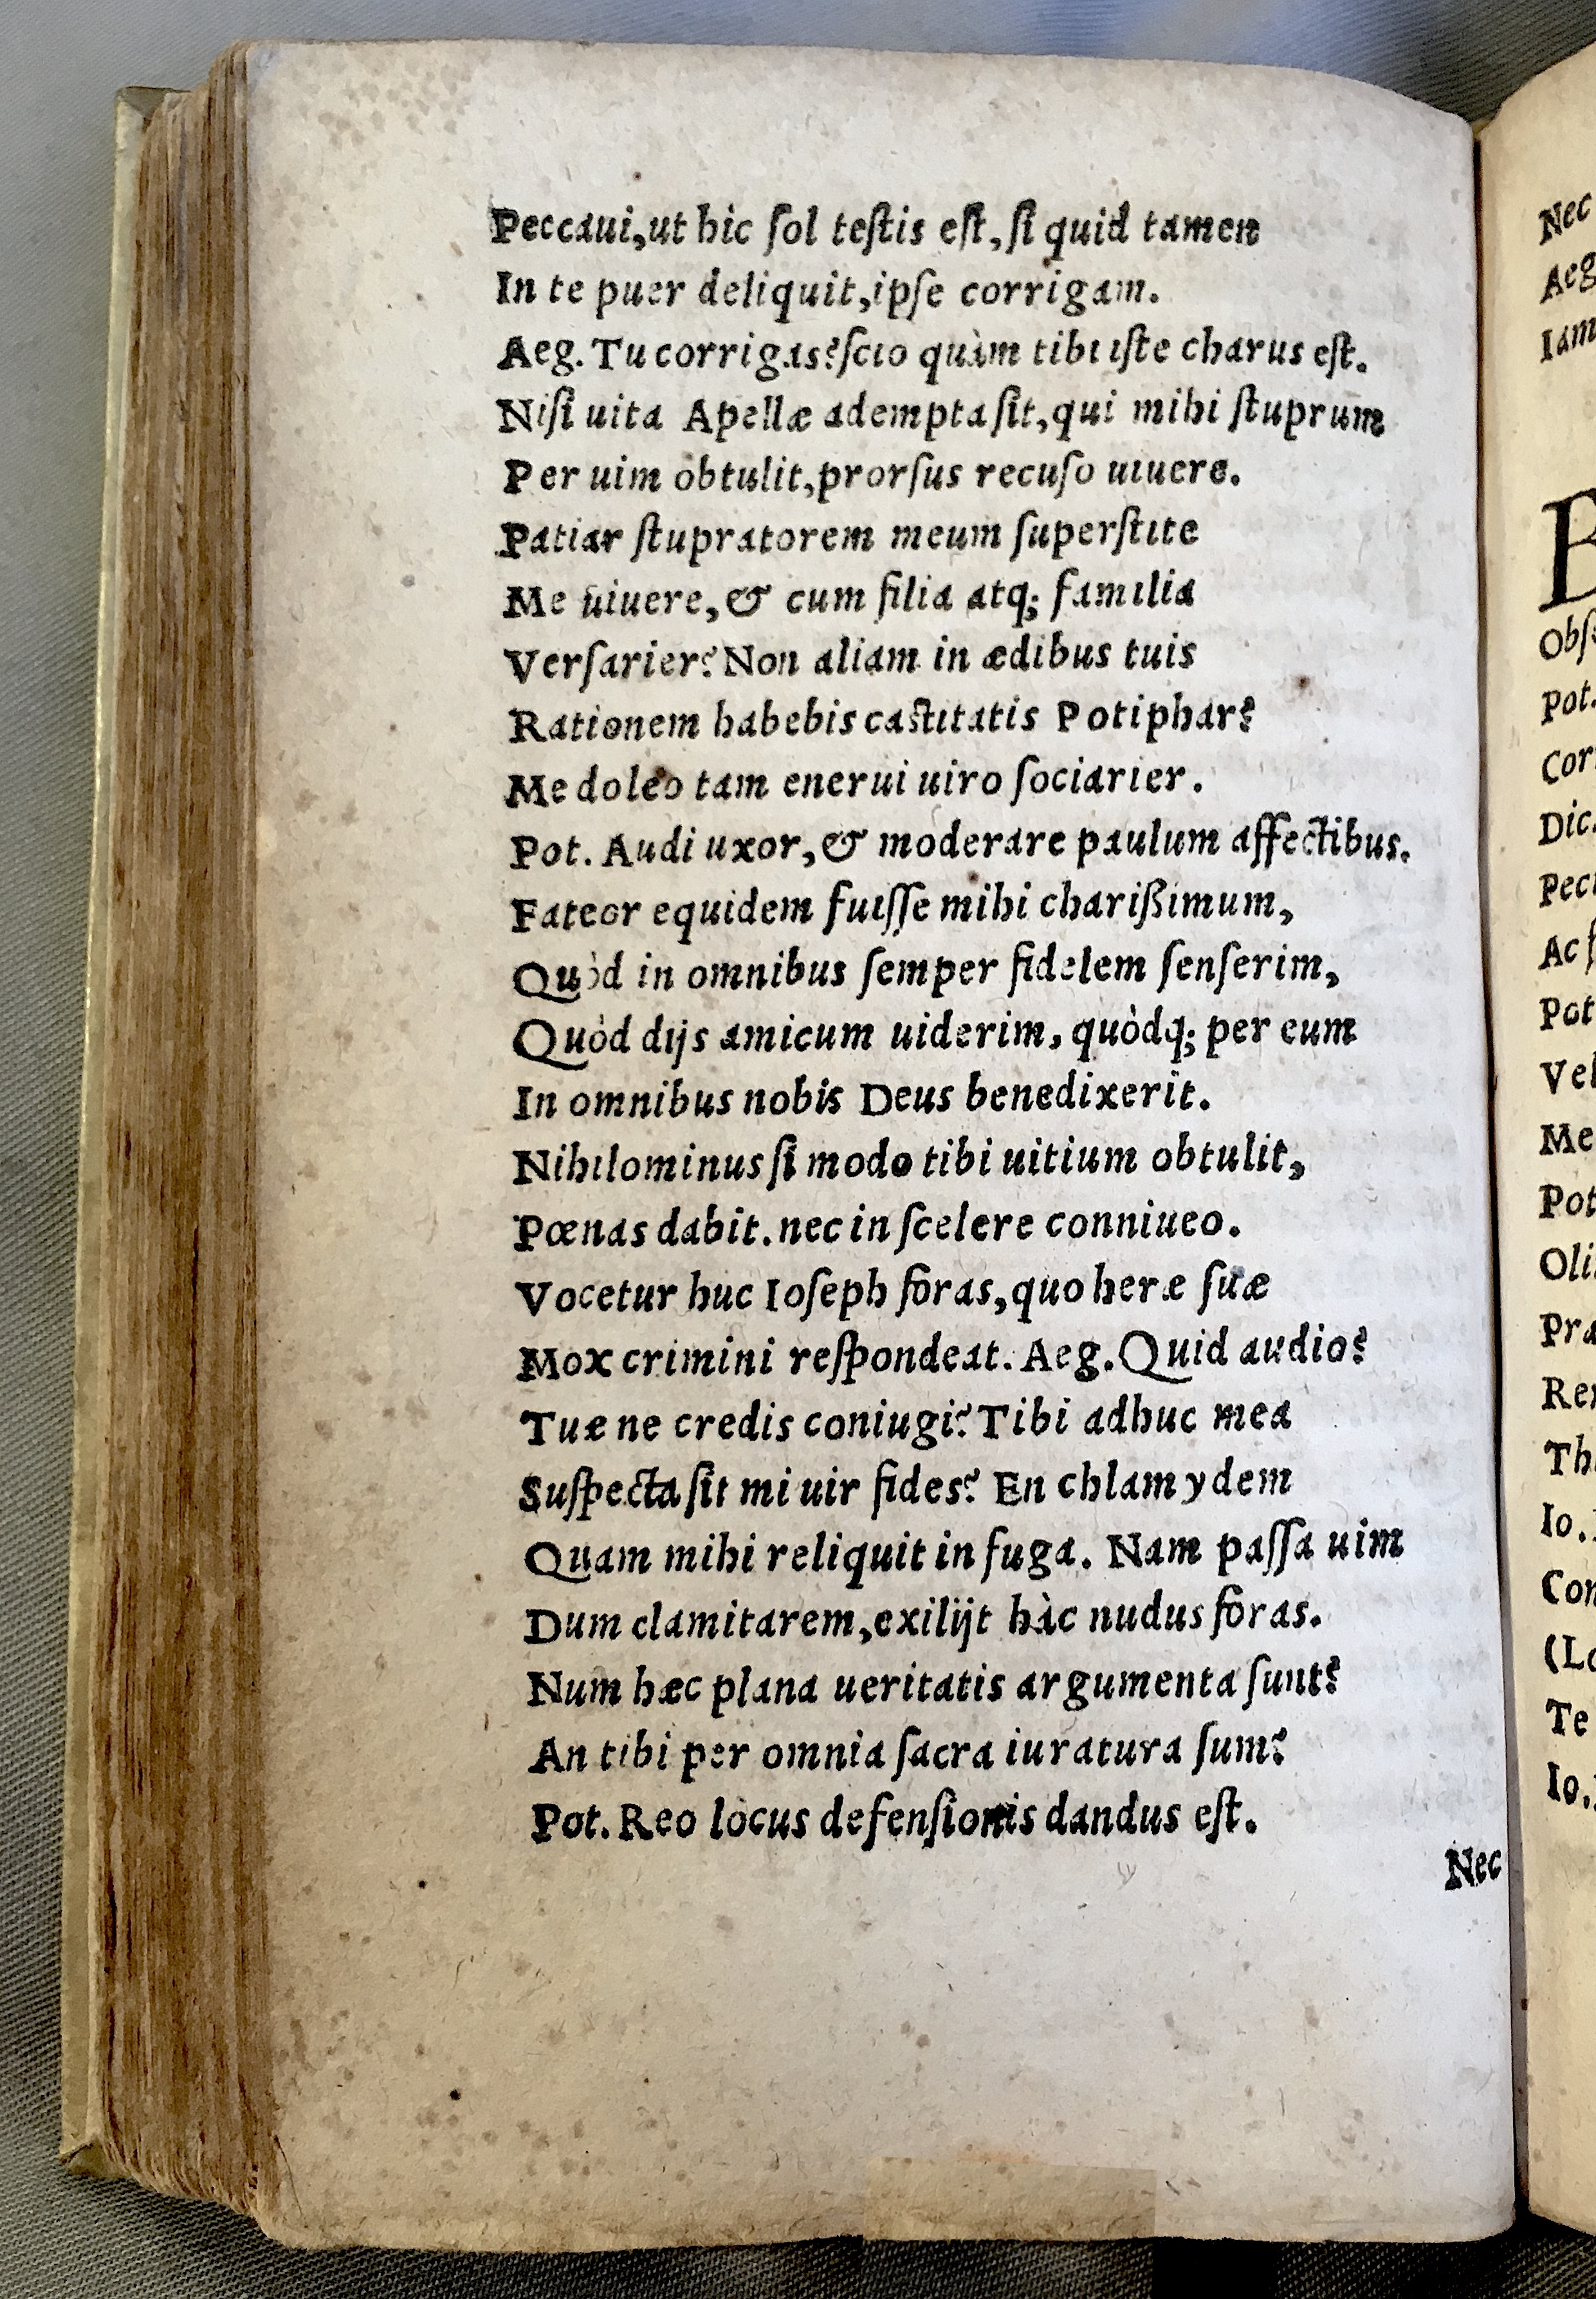 Peccaui,ut hic ſol teſtis eſt, ſi quid tamen
In te puer deliquit,ipſe corrigam.
Aeg. Tu corrigas?ſcio quàm tibi iſte charus eſt.
Niſi uita Apellæ adempta ſit,qui mihi ſtuprum
Per uim obtulit,prorſus recuſo uiuere.
Patiar ſtupratorem meum ſuperſtite
Me uiuere, & cum filia atq; familia
Verſarier? Non aliam in ædibus tuis
Rationem habebis caſtitatis Potiphar?
Me doleo tam enerui uiro ſociarier.
Pot. Audi uxor, & moderare paulum affectibus.
Fateor equidem fuiſſe mihi charißimum,
Quòd in omnibus ſemper fidelem ſenſerim,
Quòd dijs amicum uiderim, quòdq; per eum
In omnibus nobis Deus benedixerit.
Nihilominus ſi modo tibi uitium obtulit,
Pœnas dabit. nec in ſcelere conniueo.
Vocetur huc Ioſeph foras, quo heræ ſuæ
Mox crimini reſpondeat. Aeg. Quid audio?
Tuæ ne credis coniugi? Tibi adhuc mea
Suſpecta ſit mi uir fides? En chlamydem
Quam mihi reliquit in fuga. Nam paſſa uim
Dum clamitarem,exilijt hàc nudus foras.
Num hæc plana ueritatis argumenta ſunt?
An tibi per omnia ſacra iuratura ſum?
Pot. Reo locus defenſionis dandus eſt.
Nec
Nec
Aeg
Iam
Obſ
Pot.
Cor
Dic.
Pec
Ac
Pot
Vel
Me
Pot
Oli
Pra
Rer
Th
Io.
Con
(Lo
Te
Io.